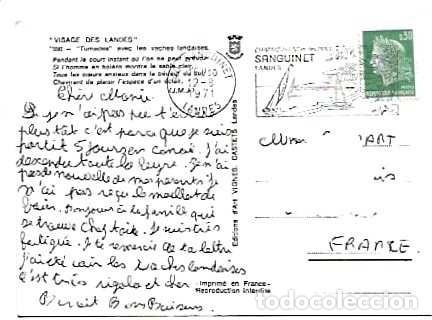 "VISAGE DES LANDES"
"Tumades" avec les vaches landaises.
Pendant le court instant où l'on ne peut prévoir
Si l'homme en boléro montre le sable clair,
Tous les cœurs anxieux dans le
Chevrant de plaisir l'espace d'un
SANGUINET
12-8
1971
LANDES
SANGUINET
LANDES
0,30
Cher
Si je n'ai pas pu t'
plus tôt c'est parce que je suis
partit 5 jours en canoë. J'ai
descendu toute la leyre. Je n'ai
pas de nouvelle de mes parents. Je
n'ai pas reçu le maillot de
bain. Bonjours à te famille qui
se trouve chez toit. Je suis très
fatigué. Je te remercie de ta lettre
j'ai été voir les vaches landaises
c'est très rigolo et cher
Benoit Bons Baisers
Editions d'Art VIGNES, CASTETS Landes
Imprimé en France
Reproduction Interdite
ART
is
FRANCE
todocoleccion